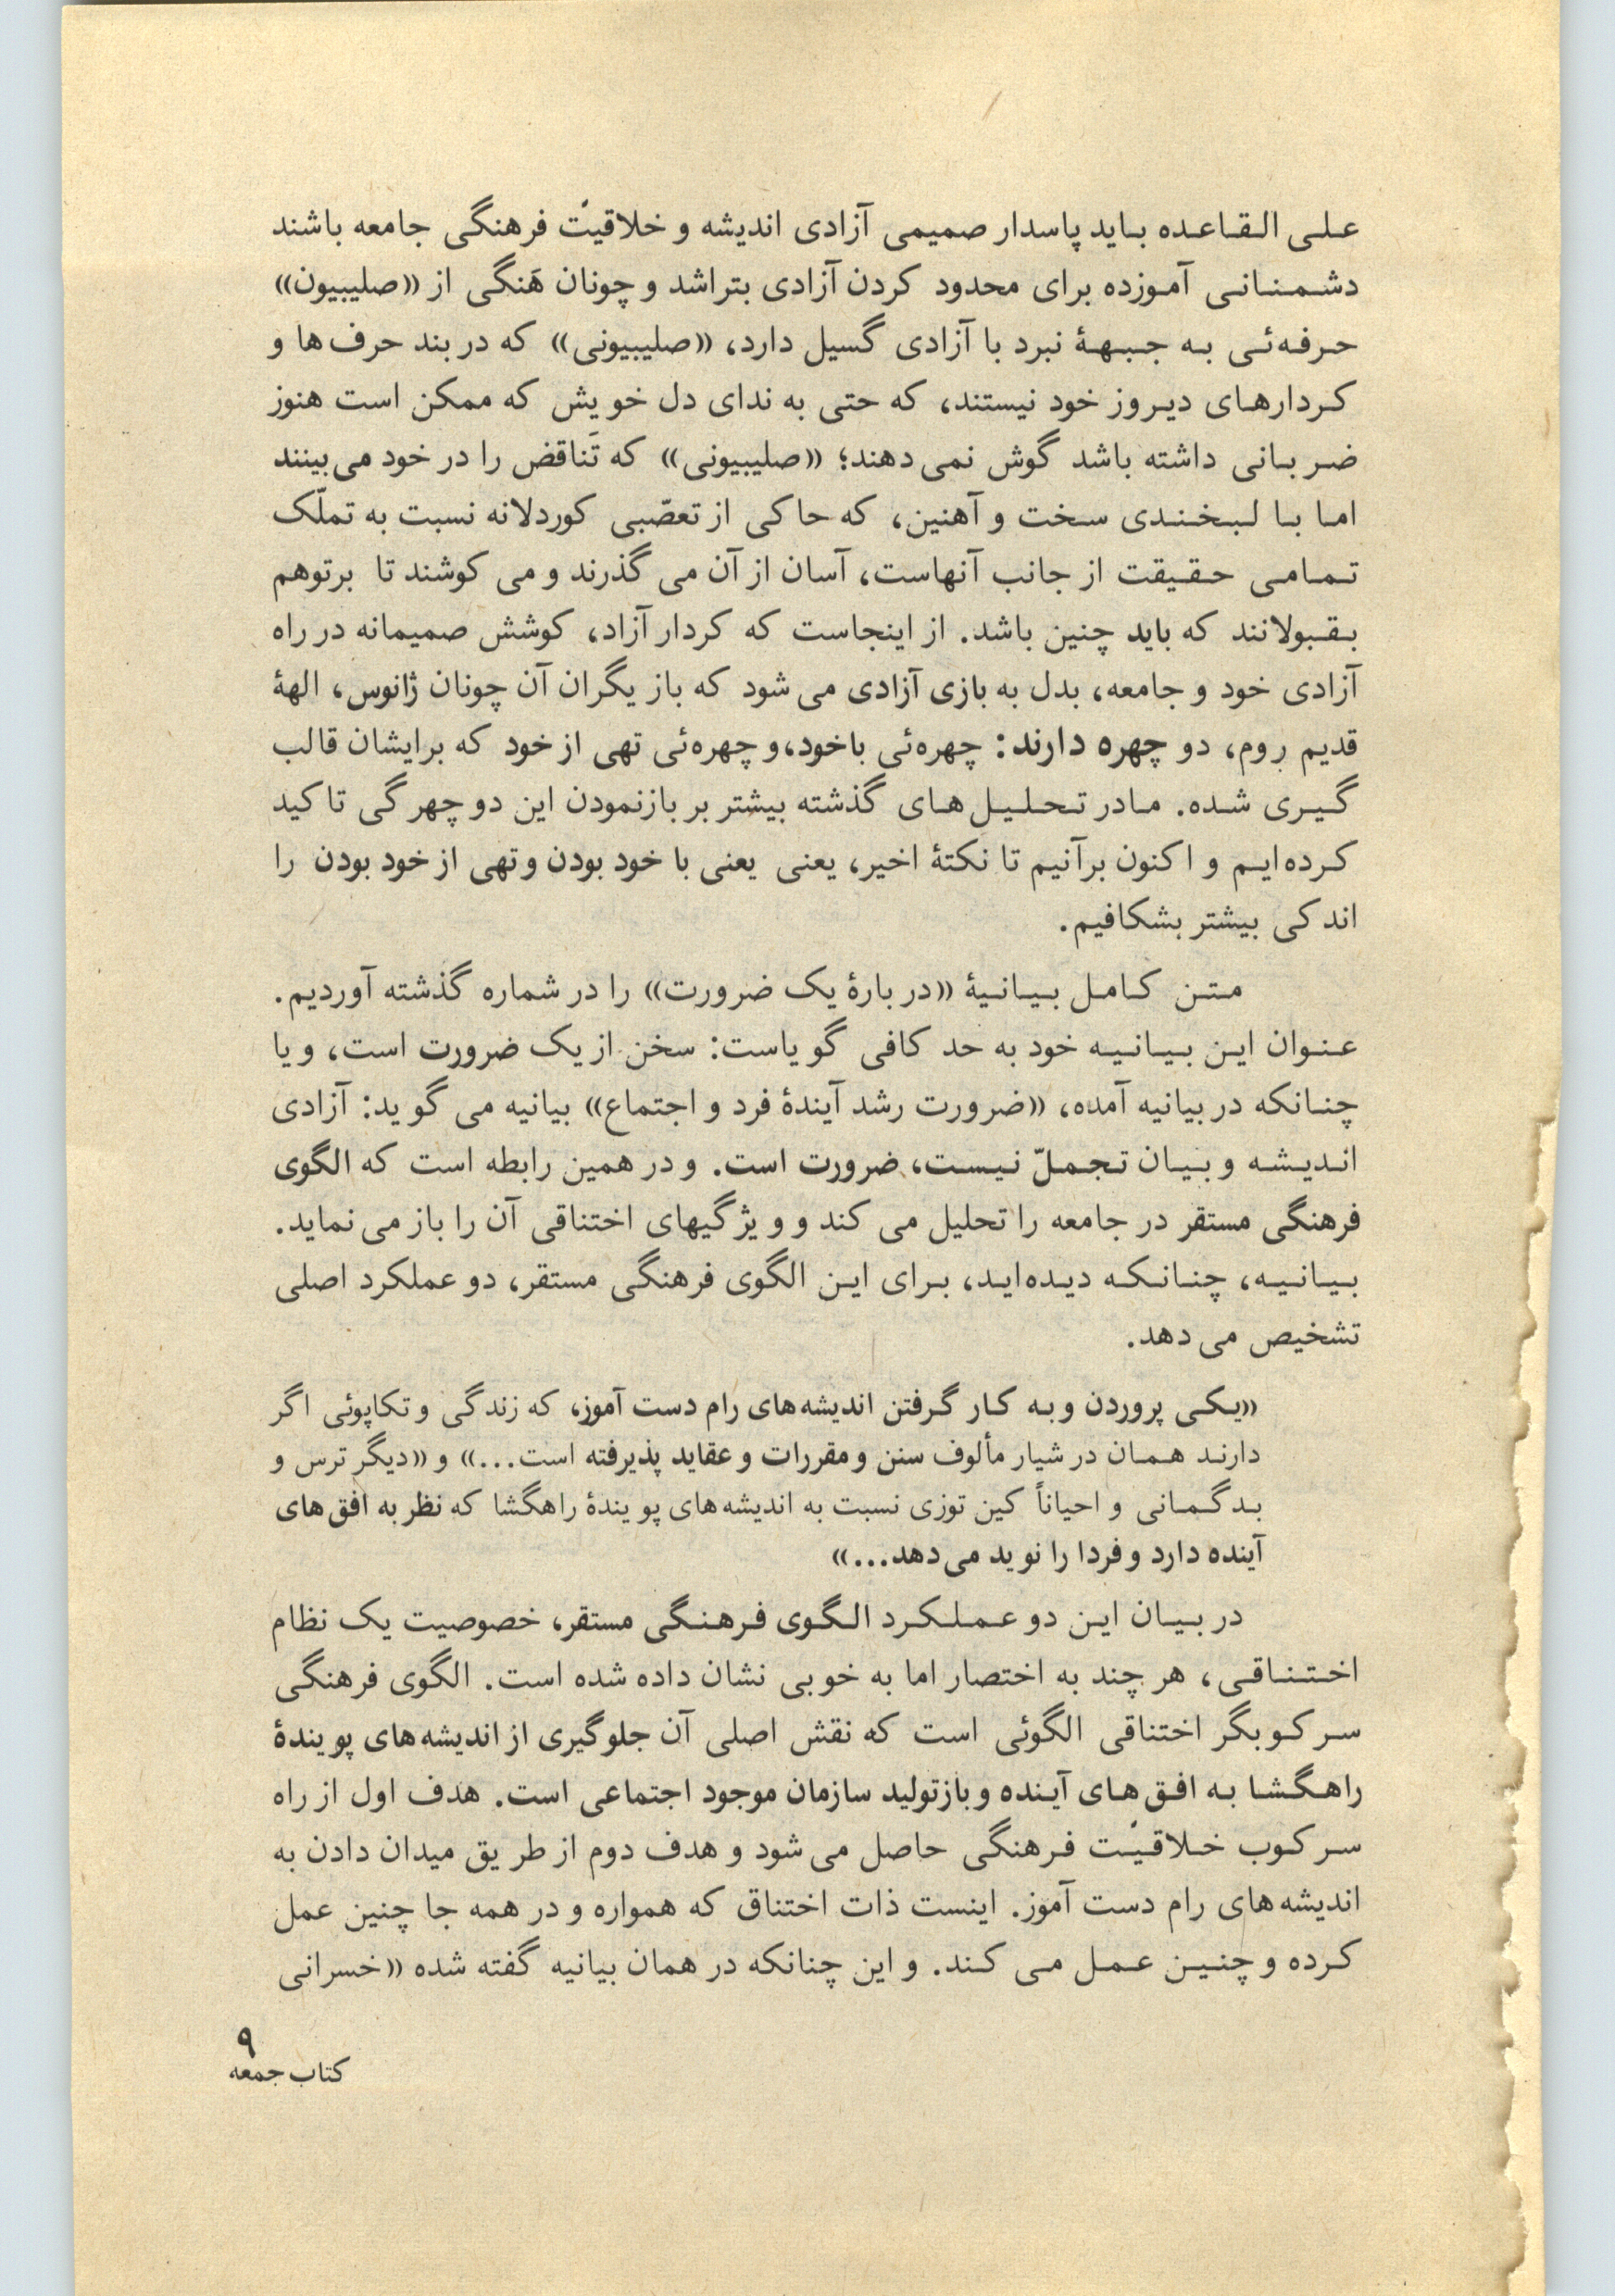 علی القاعده باید پاسدار صمیمی آزادی اندیشه و خلاقیّت فرهنگی جامعه باشند
دشمنانی آموزده برای محدود کردن آزادی بتراشد و چونان هَنگی از «صلیبیون»
حرفه‌ئی به جبههٔ نبرد با آزادی گسیل دارد، «صلیبیونی» که در بند حرف‌ها و
کردارهای دیروز خود نیستند، که حتی به ندای دل خویش که ممکن است هنوز
ضربانی داشته باشد گوش نمی‌دهند؛ «صلیبیونی» که تَناقض را در خود می‌بینند
اما با لبخندی سخت و آهنین، که حاکی از تعصّبی کوردلانه نسبت به تملّک
تمامی حقیقت از جانب آنهاست، آسان از آن می‌گذرند و می‌کوشند تا برتوهم
بقبولانند که باید چنین باشد. از اینجاست که کردار آزاد، کوشش صمیمانه در راه
آزادی خود و جامعه، بدل به بازی آزادی می‌شود که بازیگران آن چونان ژانوس، الههٔ
قدیم روم، دو چهره دارند: چهره‌ئی باخود، و چهره‌ئی تهی از خود که برایشان قالب
گیری شده. مادر تحلیل‌های گذشته بیشتر بر بازنمودن این دو چهرگی تاکید
کرده‌ایم و اکنون برآنیم تا نکتهٔ اخیر، یعنی یعنی با خود بودن و تهی از خود بودن را
اندکی بیشتر بشکافیم.
متن کامل بیانیهٔ «دربارهٔ یک ضرورت» را در شماره گذشته آوردیم.
عنوان این بیانیه خود به حد کافی گویاست: سخن از یک ضرورت است، و یا
چنانکه در بیانیه آمده، «ضرورت رشد آیندهٔ فرد و اجتماع» بیانیه می‌گوید: آزادی
اندیشه و بیان تجملّ نیست، ضرورت است. و در همین رابطه است که الگوی
فرهنگی مستقر در جامعه را تحلیل می‌کند و ویژگیهای اختناقی آن را باز می‌نماید.
بیانیه، چنانکه دیده‌اید، برای این الگوی فرهنگی مستقر، دو عملکرد اصلی
تشخیص می‌دهد.
«یکی پروردن و به کار گرفتن اندیشه‌های رام دست آموز، که زندگی و تکاپوئی اگر
دارند همان در شیار مألوف سنن و مقررات و عقاید پذیرفته است...» و «دیگر ترس و
بدگمانی و احیاناً کین توزی نسبت به اندیشه‌های پویندهٔ راهگشا که نظر به افق‌های
آینده دارد و فردا را نوید می‌دهد...»
در بیان این دو عملکرد الگوی فرهنگی مستقر، خصوصیت یک نظام
اختناقی، هر چند به اختصار اما به خوبی نشان داده شده است. الگوی فرهنگی
سرکوبگر اختناقی الگوئی است که نقش اصلی آن جلوگیری از اندیشه‌های پویندهٔ
راهگشا به افق‌های آینده و بازتولید سازمان موجود اجتماعی است. هدف اول از راه
سرکوب خلاقیّت فرهنگی حاصل می‌شود و هدف دوم از طریق میدان دادن به
اندیشه‌های رام دست آموز. اینست ذات اختناق که همواره و در همه جا چنین عمل
کرده و چنین عمل می کند. و این چنانکه در همان بیانیه گفته شده «خسرانی
۹
کتاب جمعه